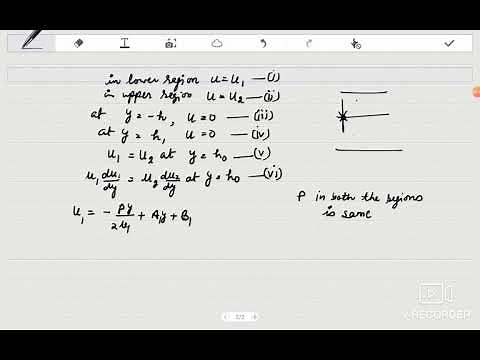 in lower region u = u₁ —(i)
in upper region u = u₂ —(ii)
at y = -h, u = 0 —(iii)
at y = h, u = 0 —(iv)
u₁ = u₂ at y = h₀ —(v)
μ₁ du₁/dy = μ₂ du₂/dy at y = h₀ —(vi)
u₁ = - Py/2μ₁ + A₁y + B₁
P in both the regions
is same
2/2
RECORDER